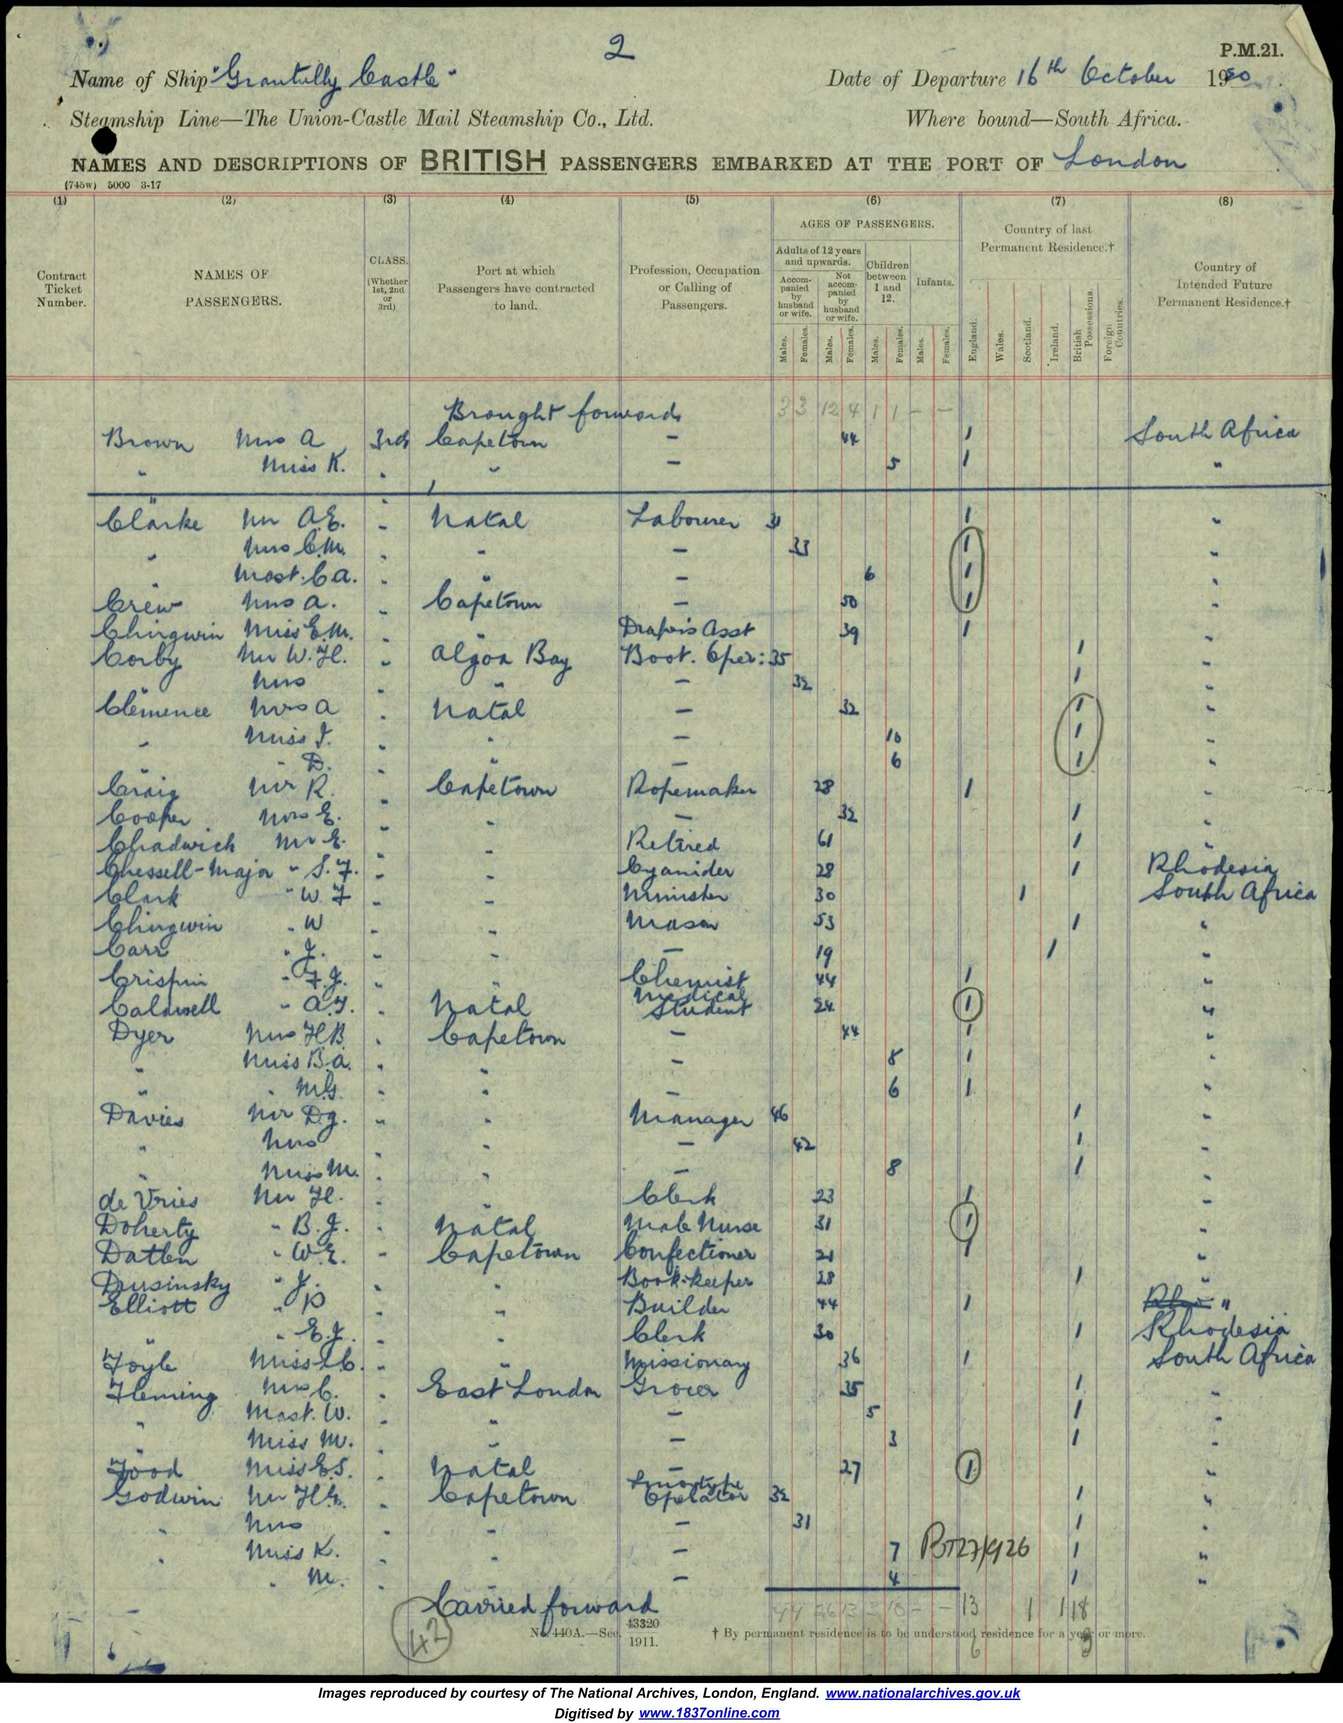 2
P.M.21.
Name of Ship "Grantully Castle" Date of Departure 16th October 19
Steamship Line—The Union-Castle Mail Steamship Co., Ltd. Where bound—South Africa.
NAMES AND DESCRIPTIONS OF BRITISH PASSENGERS EMBARKED AT THE PORT OF London
(745w) 5000 3-17
(1) (2) (3) (4) (5) (6) (7) (8)
Contract Ticket Number.
NAMES OF PASSENGERS.
CLASS. (Whether 1st, 2nd or 3rd)
Port at which Passengers have contracted to land.
Profession, Occupation or Calling of Passengers.
AGES OF PASSENGERS.
Adults of 12 years and upwards.
Accompanied by husband or wife.
Not accompanied by husband or wife.
Children between 1 and 12.
Infants.
Males. Females. Males. Females. Males. Females. Males. Females.
Country of last Permanent Residence.†
England. Wales. Scotland. Ireland. British Possessions. Foreign Countries.
Country of Intended Future Permanent Residence.†
Brought forward 3 3 12 4 1 1 - -
Brown Mrs A 3rd Capetown - 44 1 South Africa
" Miss K. " " - 5 1 "
Clarke Mr A.E. " Natal Labourer 31 1 "
" Mrs C.M. " " - 33 1 "
" Mast. C.A. " " - 6 1 "
Crew Mrs A. " Capetown - 50 1 "
Chirgwin Miss E.M. " " Draper's Asst 39 1 "
Corby Mr W.H. " Algoa Bay Boot. Oper: 35 1 "
" Mrs " " - 32 1 "
Clemence Mrs A " Natal - 32 1 "
" Miss I. " " - 10 1 "
" " D. " " - 6 1 "
Craig Mr R. " Capetown Ropemaker 28 1 "
Cooper Mrs E. " " - 32 1 "
Chadwick Mr E. " " Retired 61 1 "
Chessell-Major " S.F. " " Cyanider 28 1 Rhodesia
Clark " W F " " Minister 30 1 South Africa
Chirgwin " W " " Mason 53 1 "
Carr " J. " " - 19 1 "
Crispin " F.J. " " Chemist 44 1 "
Caldwell " A.F. " Natal Medical Student 24 1 "
Dyer Mrs H.B. " Capetown - 44 1 "
" Miss B.A. " " - 8 1 "
" " M.G. " " - 6 1 "
Davies Mr D.J. " " Manager 46 1 "
" Mrs " " - 42 1 "
" Miss M. " " - 8 1 "
de Vries Mr H. " " Clerk 23 1 "
Doherty " B.J. " Natal Male Nurse 31 1 "
Datlen " W.E. " Capetown Confectioner 21 1 "
Dusinsky " J. " " Book-keeper 28 1 "
Elliott " P " " Builder 44 1 "
" " E.J. " " Clerk 30 1 Rhodesia
Foyle Miss L.C. " " Missionary 36 1 South Africa
Fleming Mrs C. " East London Grocer 35 1 "
" Mast. W. " " - 5 1 "
" Miss M. " " - 3 1 "
Food Miss E.S. " Natal - 27 1 "
Godwin Mr H.E. " Capetown Linotype Operator 32 1 "
" Mrs " " - 31 1 "
" Miss K. " " - 7 1 "
" M. " " - 4 1 "
BT27/926
Carried forward 13 1 1 18
42
No. 440A.—Sec. 43320 1911.
† By permanent residence is to be understood residence for a year or more.
6 9
Images reproduced by courtesy of The National Archives, London, England. www.nationalarchives.gov.uk
Digitised by www.1837online.com